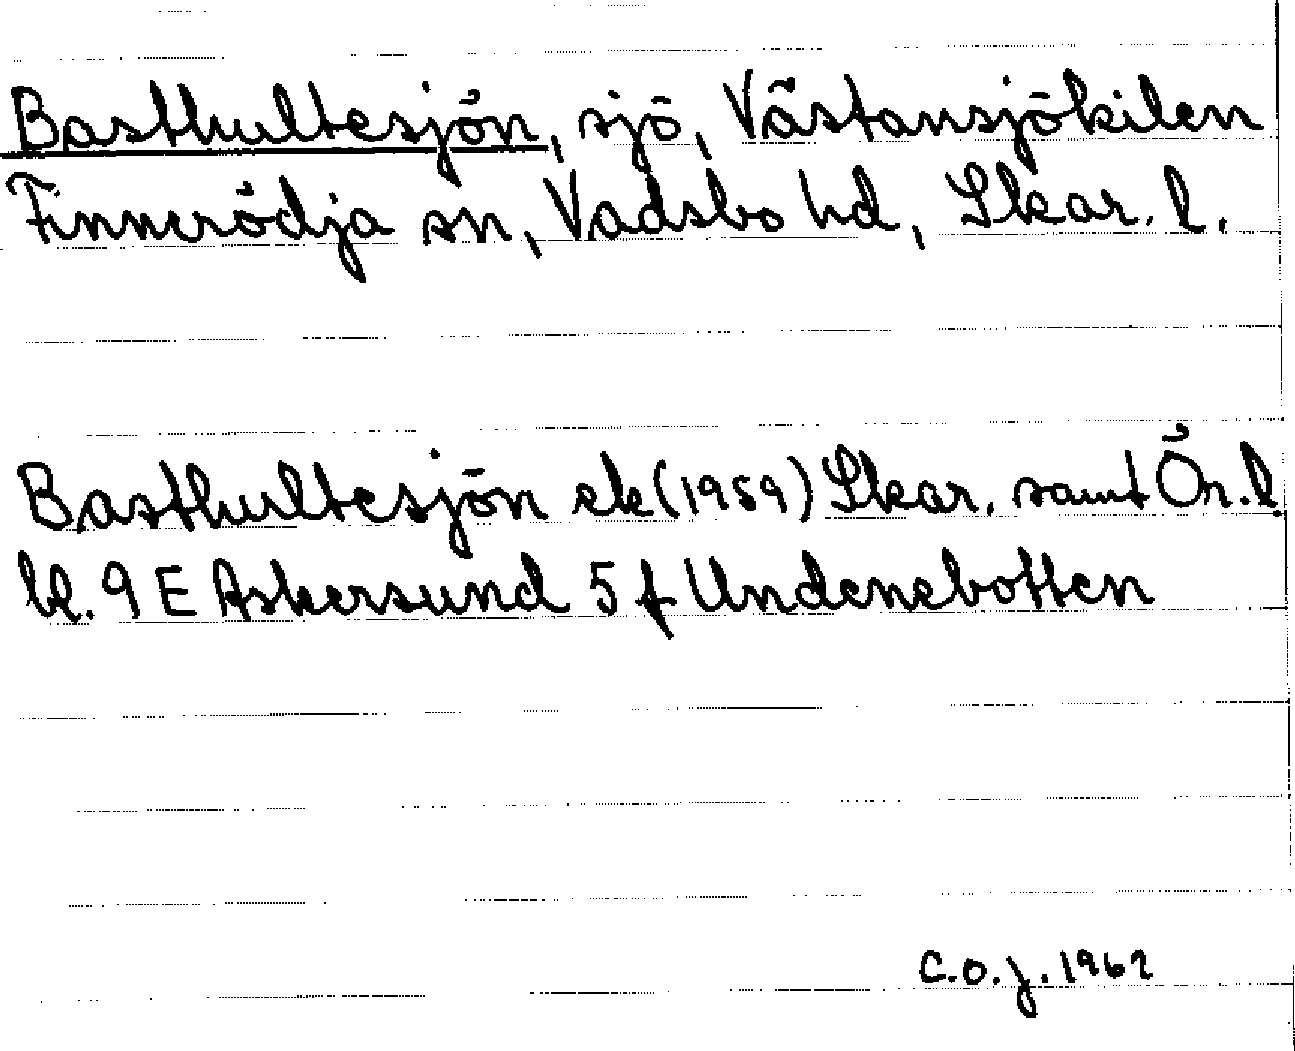 Basthultesjön, sjö, Västansjökilen
Finnerödja sn, Vadsbo hd, Skar. l.
Basthultesjön ek (1959) Skar. samt Ör. l.
bl. 9 E Askersund 5 f Undenebotten
C.O.J. 1962